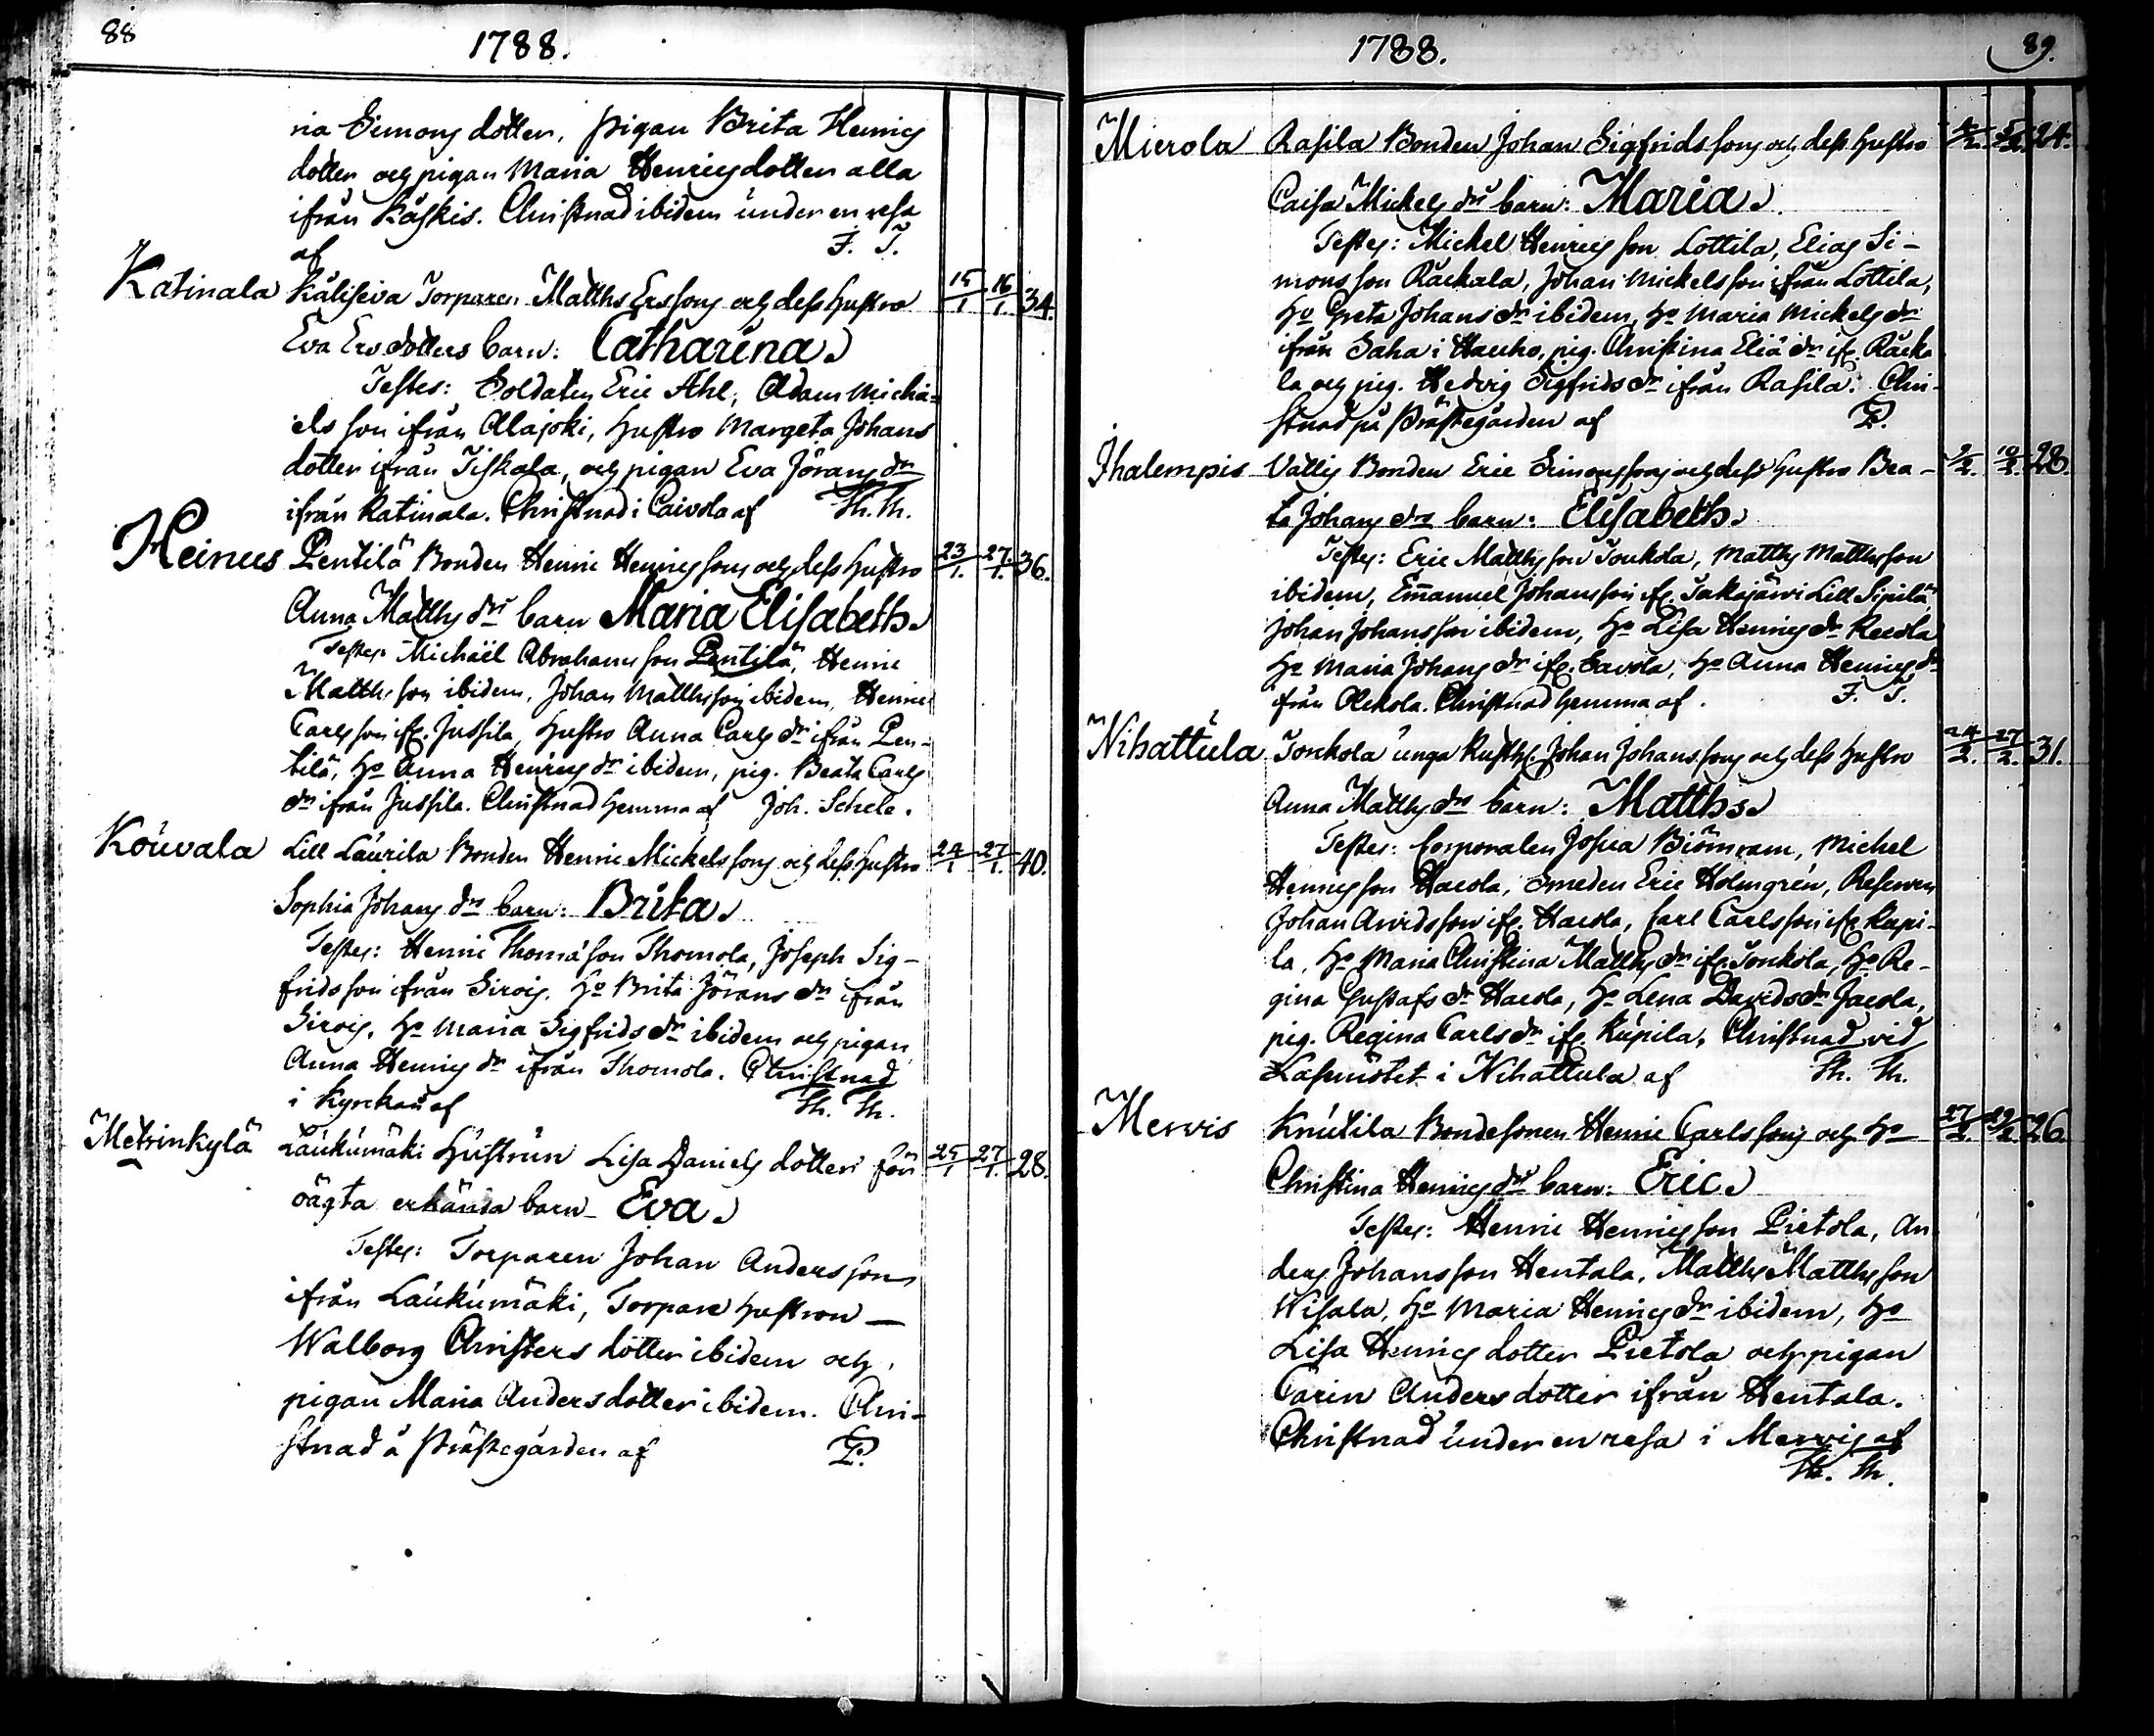 88
1788.
ria Simons dotter, pigan Brita Henrics
dotter och pigan Maria Henricsdotter alla
ifrån Käskis. Christnad ibidem under en resa
af F. T.
Katinala Käliseva Torparen Matths Erssons och dess hustro 15/1 16/1 34.
Eva Ersdotters barn: Catharina.
Testes: Soldaten Eric Ahl, Adam Micha=
els son ifrån Alajoki, hustro Margeta Johans
dotter ifrån Tiskala, och pigan Eva Jörans dr
ifrån Katinala. Christnad i Caivola af Th. Th.
Heinus Pentilä Bonden Henric Henricssons och dess hustro 23/1. 27/1. 36.
Anna Matths drs barn Maria Elisabeth.
Testes Michaël Abrahams son Pentilä, Henric
Matths son ibidem, Johan Matthsson ibidem, Henric
Carlsson ifr. Jussila, hustro Anna Carls dr ifrån Pen-
tilä, Ho Anna Henrics dr ibidem, pig. Beata Carls
dr ifrån Jussila. Christnad hemma af Joh. Schele.
Kouvala Lill Laurila Bonden Henric Mickelssons och dess hustro 24/1 27/1. 40.
Sophia Johans drs barn: Brita.
Testes: Henric Thomasson Thomola, Joseph Sig-
frids son ifrån Sirois. Ho Brita Jörans dr ifrån
Sirois, Ho Maria Sigfrids dr ibidem och pigan
Anna Henrics dr ifrån Thomola. Christnad
i Kyrckan af Th. Th.
Metsinkylä Laukumäki Hustrun Lisa Daniels dotters för 25/1 27/1. 28.
oägta erkända barn Eva.
Testes: Torparen Johan Andersson
ifrån Laukumäki, Torpare hustron
Walborg Christers dotter ibidem och
pigan Maria Andersdotter ibidem. Chri-
stnad å Prästegården af P.
1788.
89.
Mierola Rasila Bonden Johan Sigfridssons och dess hustro 4/2. 5/2. 24.
Caisa Mickels drs barn: Maria.
Testes: Michel Henrics son Lottila, Elias Si-
monsson Räckala, Johan Mickelsson ifrån Lottila,
Ho Greta Johans dr ibidem, Ho Maria Mickels dr
ifrån Saha i Hauho, pig. Christina Eliä dr ifr. Räcka
la och pig. Hedvig Sigfrids dr ifrån Rasila. Chri-
stnad på Prästegården af P.
Ihalempis Vällis Bonden Eric Simonssons och dess hustro Bea- 9/2. 10/2. 28.
ta Johans drs barn: Elisabeth.
Testes: Eric Matths son Toukola, Matths Matthsson
ibidem, Emanuel Johansson ifr. Sakajärwi Lill Sipilä,
Johan Johansson ibidem, Ho Lisa Henrics dr Recola
Ho Maria Johans dr ifr. Eavola, Ho Anna Henrics dr
ifrån Alckola. Christnad hemma af F. T.
Nihattula Tonkola unga Rusth. Johan Johanssons och dess hustro 24/2. 27/2. 31.
Anna Matths drs barn: Matths.
Testes: Corporalen Josua Biömram, Michel
Henrics son Hacola, Smeden Eric Holmgren, Reserven
Johan Arvidsson ifr. Hacola, Carl Carlsson ifr. Kupi-
la, Ho Maria Christina Matths dr ifr. Tonkola, Ho Re-
gina Gustafs dr Hacola, Ho Lena Davids dr Jacola,
pig. Regina Carls dr ifr. Kupila. Christnad vid
Läsmötet i Nihattula af Th. Th.
Mervis Knutila Bondesonen Henric Carlssons och Ho 27/2. 29/2. 26.
Christina Henrics drs barn: Eric.
Testes: Henric Henricsson Pietola, An
ders Johansson Hentala, Matths Matthsson
Wisala, Ho Maria Henrics dr ibidem, Ho
Lisa Henrics dotter Pietola och pigan
Carin Anders dotter ifrån Hentala.
Christnad under en resa i Mervis af
Th. Th.